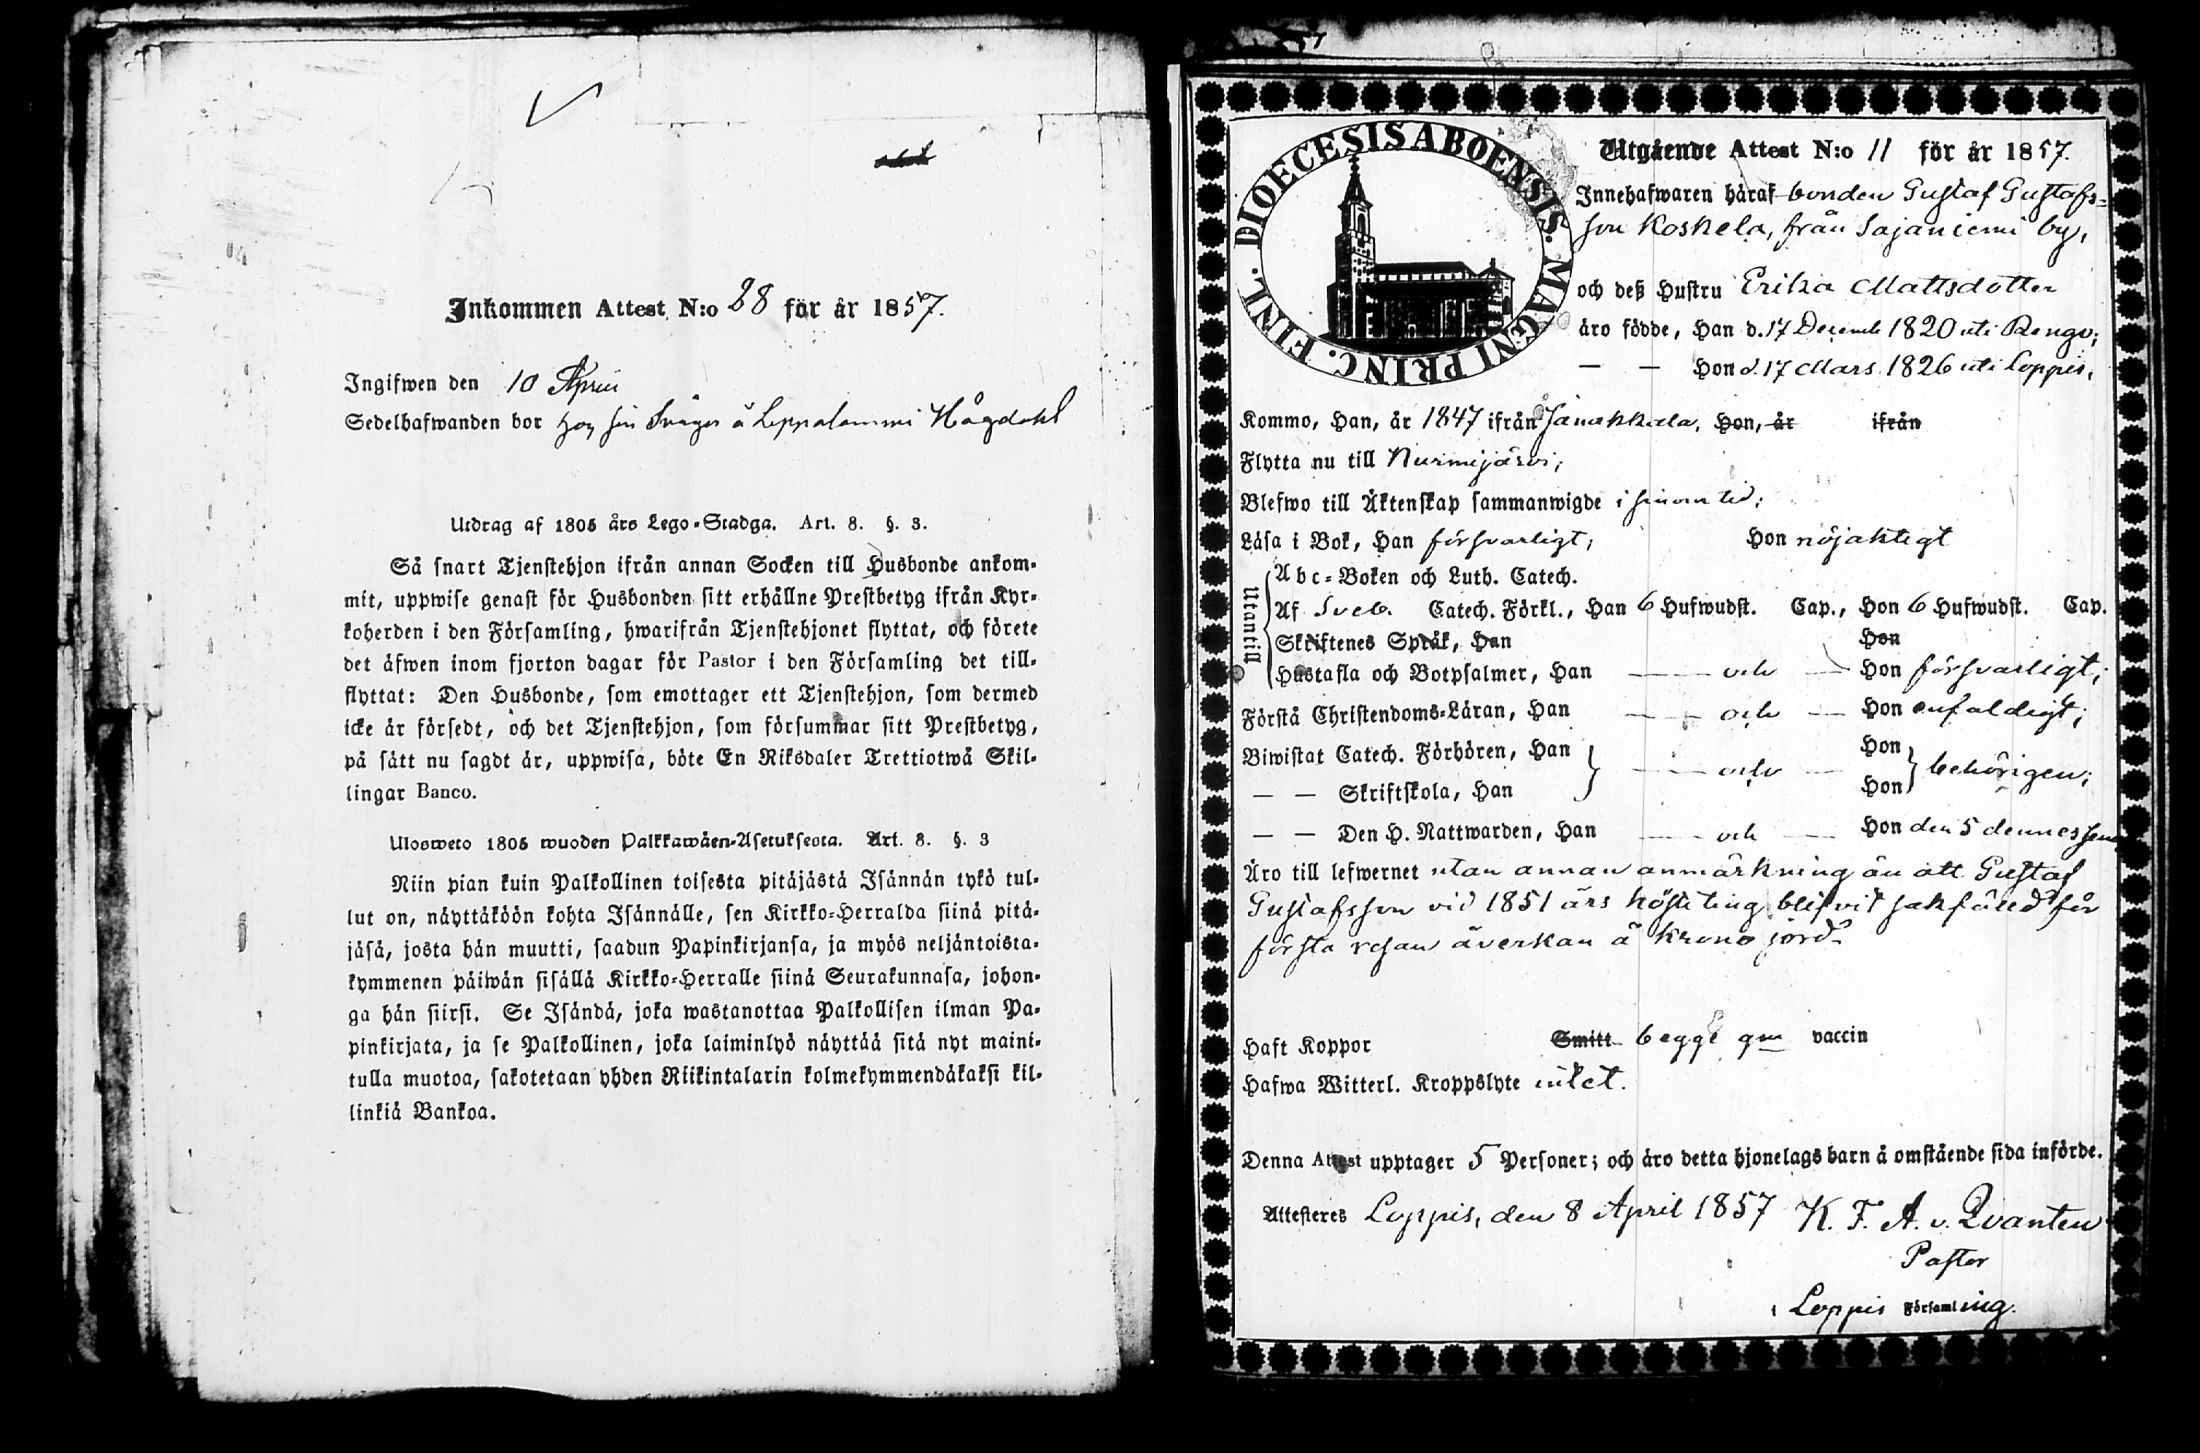 Inkommen Attest N:o 28 för år 1857.
Ingifwen den 10 April
Sedelhafwanden bor hos sin Svåger å Leppälammi Högdahl
Utdrag af 1805 års Lego-Stadga. Art. 8. §. 3.
Så snart Tjenstehjon ifrån annan Socken till Husbonde ankom-
mit, uppwise genast för Husbonden sitt erhållne Prestbetyg ifrån Kyr-
koherden i den Församling, hwarifrån Tjenstehjonet flyttat, och förete
det äfwen inom fjorton dagar för Pastor i den Församling det till-
flyttat: Den Husbonde, som emottager ett Tjenstehjon, som dermed
icke är försedt, och det Tjenstehjon, som försummar sitt Prestbetyg,
på sätt nu sagdt är, uppwisa, böte En Riksdaler Trettiotwå Skil-
lingar Banco.
Ulosweto 1805 wuoden Palkkawäen-Asetuksesta. Art. 8. §. 3
Niin pian kuin Palkollinen toisesta pitäjästä Isännän tykö tul-
lut on, näyttäköön kohta Isännälle, sen Kirkko-Herralda siinä pitä-
jäsä, josta hän muutti, saadun Papinkirjansa, ja myös neljäntoista-
kymmenen päiwän sisällä Kirkko-Herralle siinä Seurakunnasa, johon-
ga hän siirsi. Se Isändä, joka wastanottaa Palkollisen ilman Pa-
pinkirjata, ja se Palkollinen, joka laiminlyö näyttää sitä nyt maini-
tulla muotoa, sakotetaan yhden Riikintalarin kolmekymmendäkaksi kil-
linkiä Bankoa.
DIOECESIS ABOENSIS. MAGNI PRINC. FINL.
Utgående Attest N:o 11 för år 1857.
Innehafwaren häraf bonden Gustaf Gustafs-
son Koskela, från Sajaniemi by,
och deß Hustru Erika Mattsdotter
äro födde, Han d. 17 Decemb 1820 uti Rengo;
— — Hon d. 17 Mars 1826 uti Loppis,
Kommo, Han, år 1847 ifrån Janakkala, Hon, år ifrån
Flytta nu till Nurmijärvi;
Blefwo till Äktenskap sammanwigde i sinom tid;
Läsa i Bok, Han försvarligt; Hon nöjaktigt
Utantill
Abc-Boken och Luth. Catech.
Af Sveb. Catech. Förkl., Han 6 Hufwudst. Cap., Hon 6 Hufwudst. Cap.
Skriftenes Språk, Han Hon
Hustafla och Botpsalmer, Han — — och — Hon försvarligt;
Förstå Christendoms-Läran, Han — — och — Hon enfaldigt;
Biwistat Catech. Förhören, Han — — och — Hon behörigen;
— — Skriftskola, Han Hon
— — Den H. Nattwarden, Han — och — Hon den 5 dennes
Äro till lefwernet utan annan anmärkning än att Gustaf
Gustafsson vid 1851 års hösteting blifvit sakfälld för
första resan åverkan å krono jord.
Haft Koppor Smitt begge gm vaccin
Hafwa Witterl. Kroppslyte intet.
Denna Attest upptager 5 Personer; och äro detta hjonelags barn å omstående sida införde.
Attesteres Loppis, den 8 April 1857 K. F. A. v. Qvanten
Pastor
i Loppis Församling.